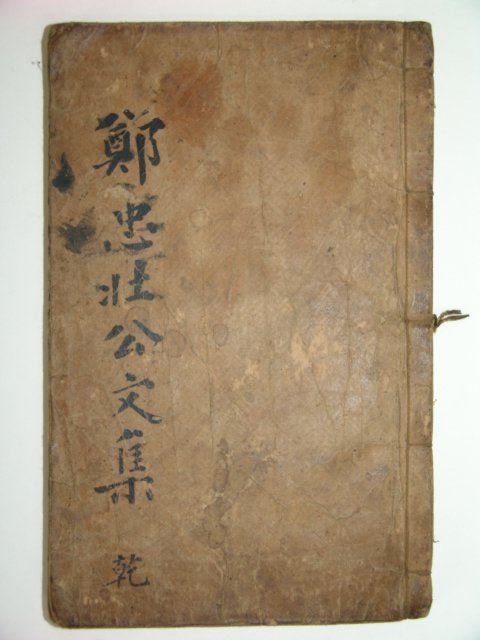 鄭忠壯公文集
乾